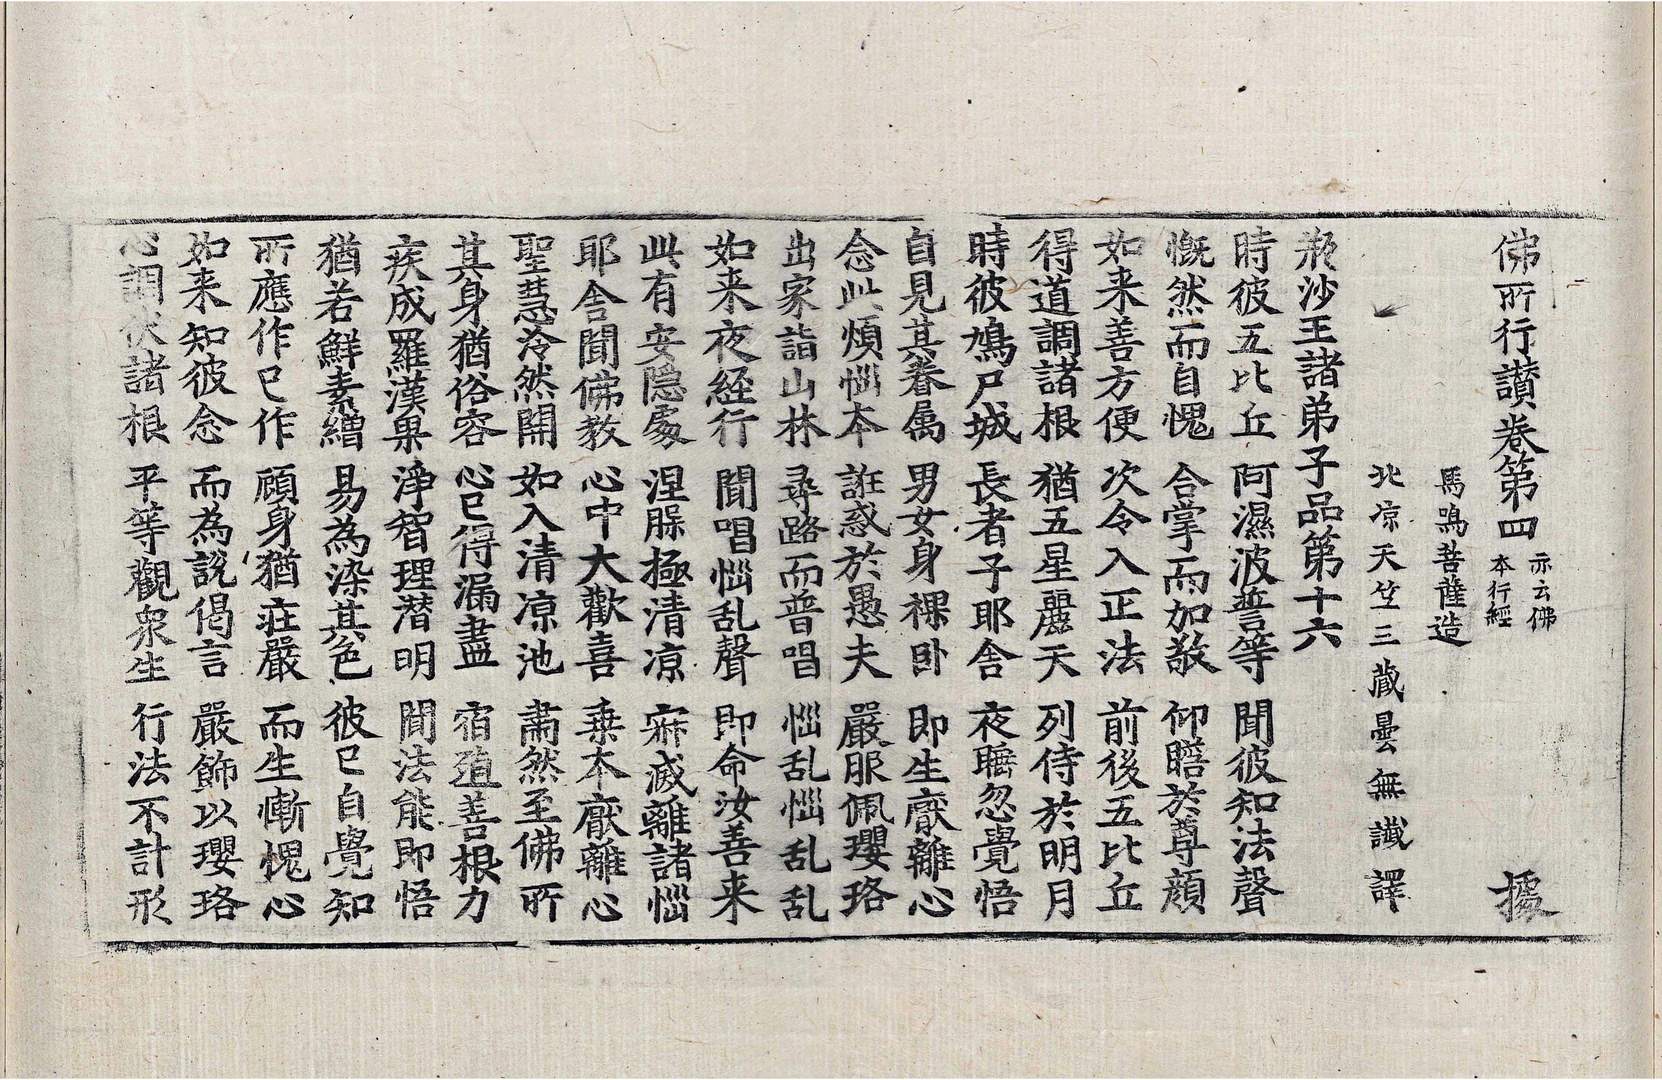 佛所行讃卷第四 亦云佛本行經 㨿
馬鳴菩薩造
北凉天竺三藏曇無讖譯
瓶沙王諸弟子品第十六
時彼五比丘 阿濕波誓等 聞彼知法聲
慨然而自愧 合掌而加敬 仰瞻於尊顔
如来善方便 次令入正法 前後五比丘
得道調諸根 猶五星麗天 列侍於明月
時彼鳩尸城 長者子耶舎 夜睡忽覺悟
自見其眷属 男女身裸卧 即生厭離心
念此煩惱本 誑惑於愚夫 嚴服佩瓔珞
出家詣山林 尋路而普唱 惱乱惱乱乱
如来夜経行 聞唱惱乱聲 即命汝善来
此有安隐處 涅槃極清凉 寂滅離諸惱
耶舎聞佛教 心中大歡喜 乗本厭離心
聖慧冷然開 如入清凉池 肅然至佛所
其身猶俗容 心已得漏盡 宿殖善根力
疾成羅漢果 淨智理潜明 聞法能即悟
猶若鮮素繒 易為染其色 彼已自覺知
所應作已作 顧身猶莊嚴 而生慚愧心
如来知彼念 而為說偈言 嚴飾以瓔珞
心調伏諸根 平等觀衆生 行法不計形